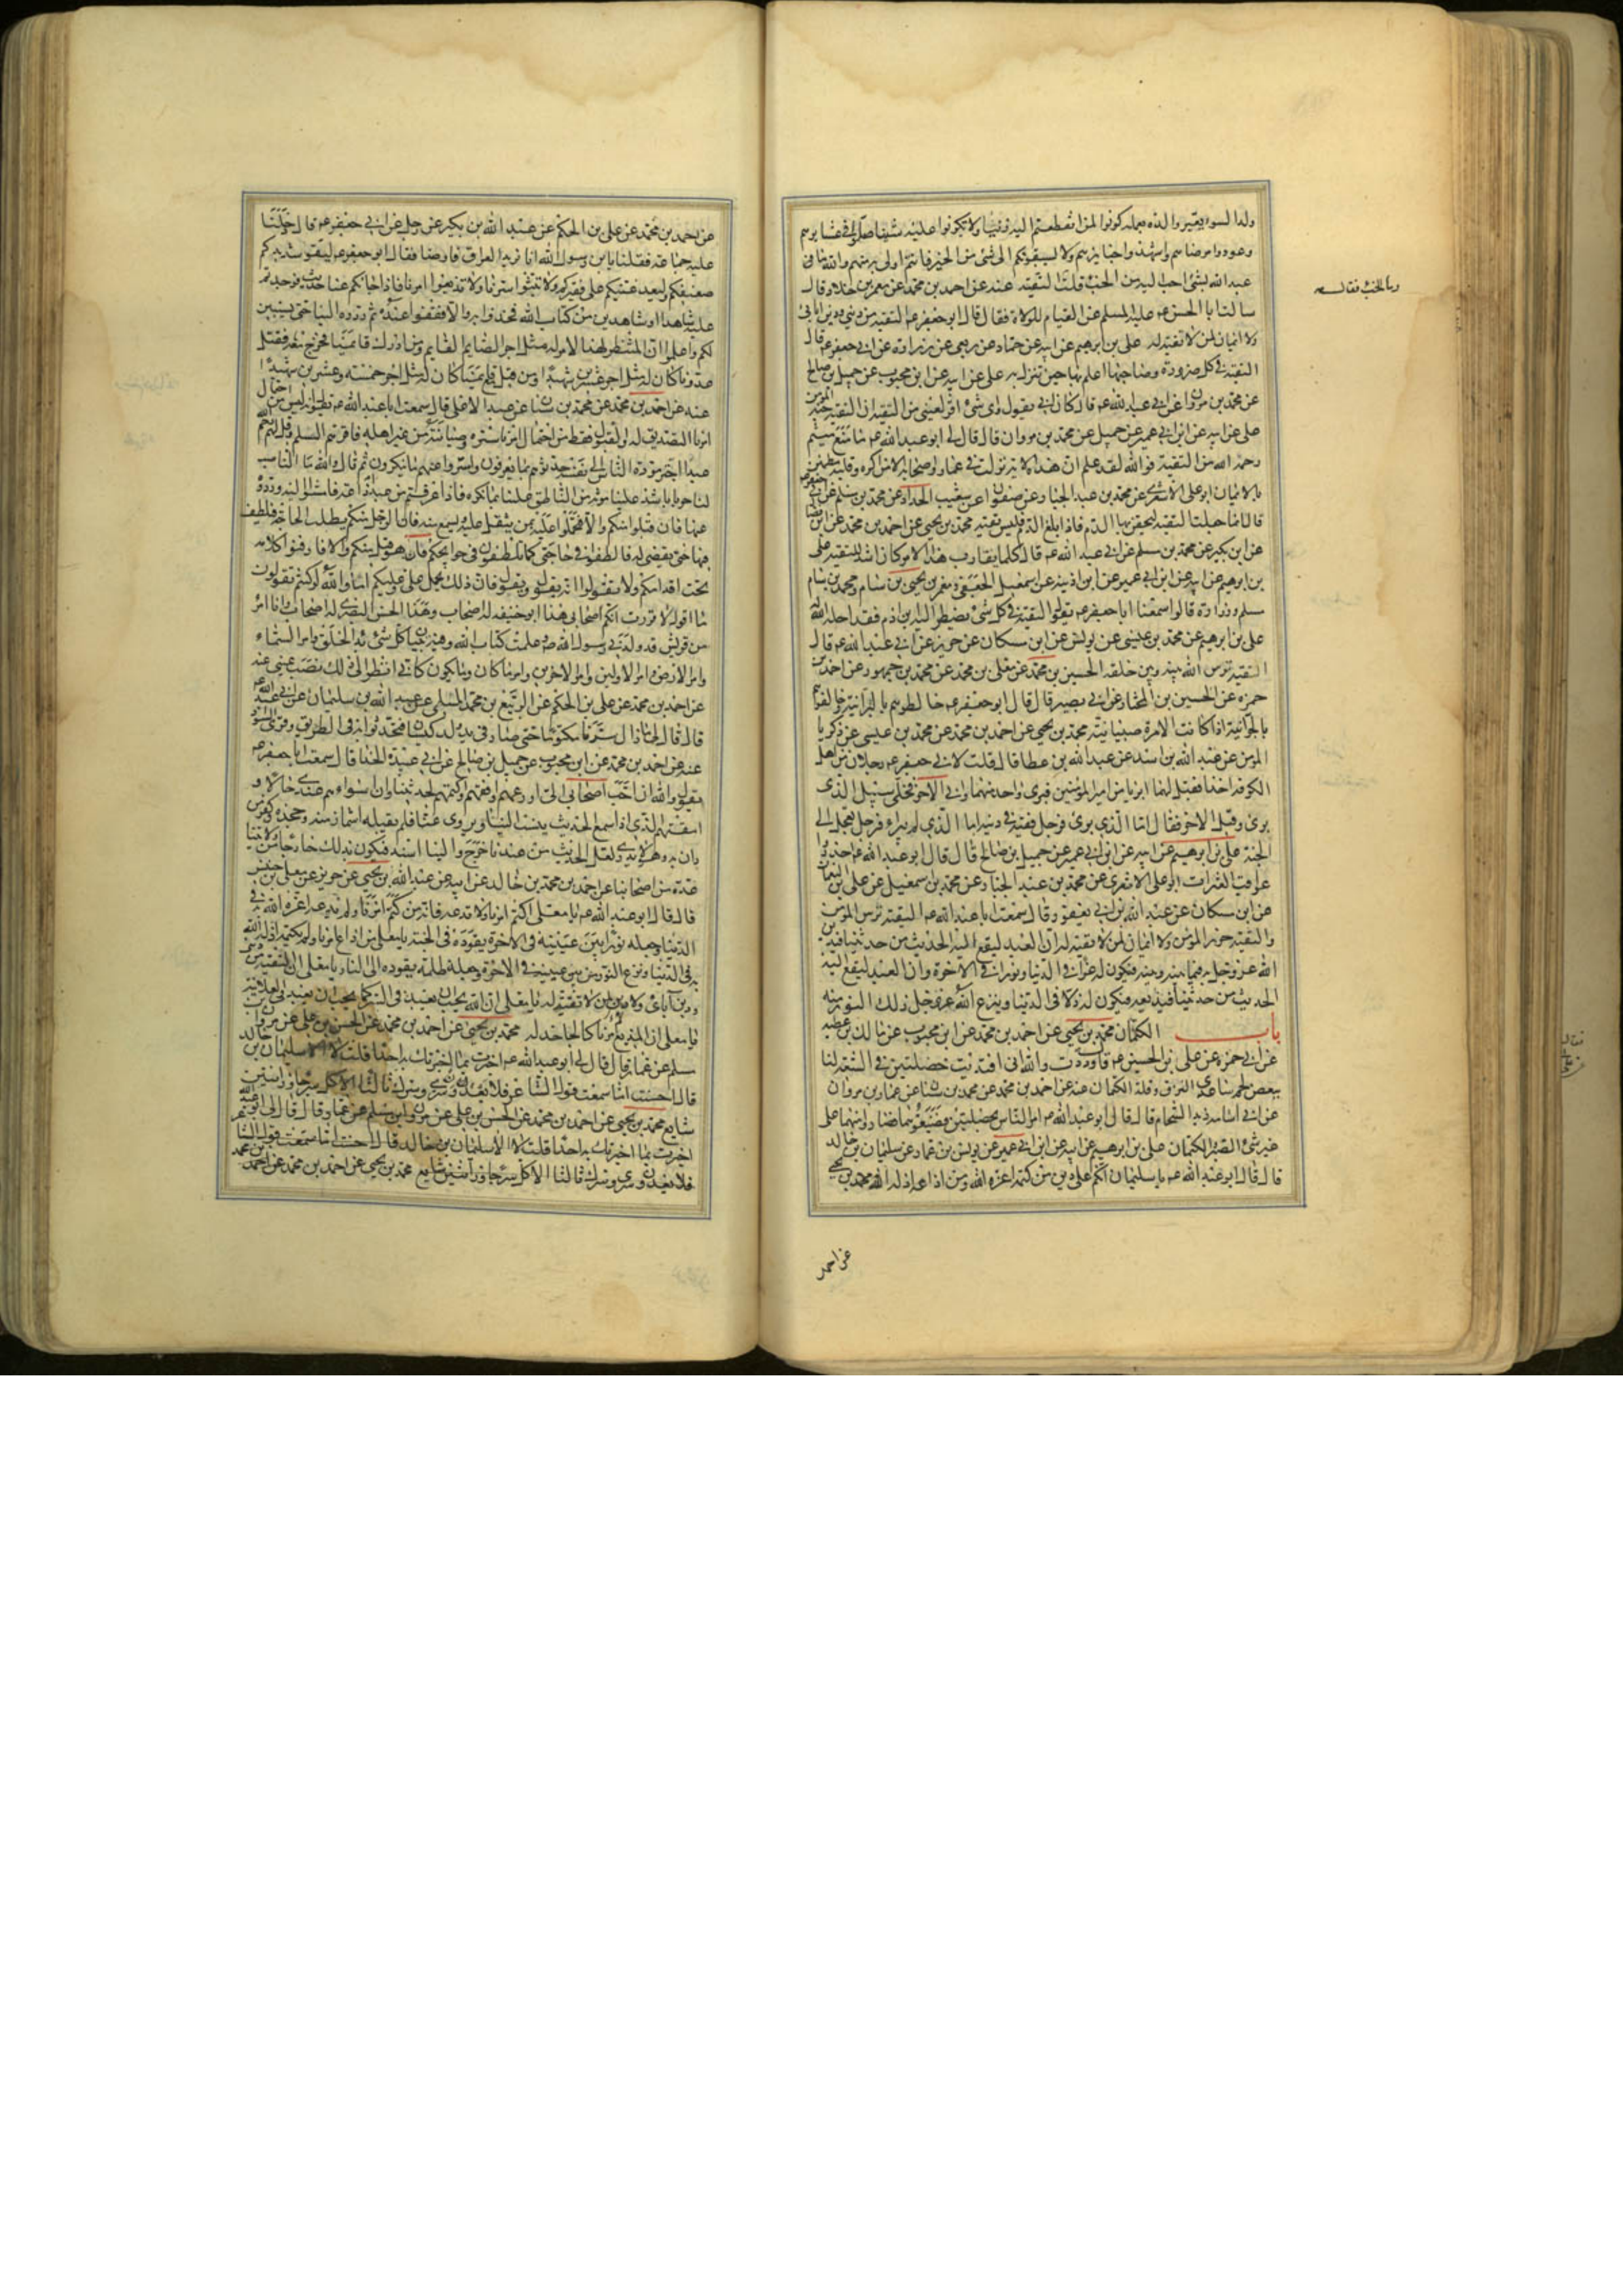 ولد السوء يعير والده بعمله كونوا لمن انقطعتم اليه زينا ولا تكونوا عليه شينا صلوا في عشايرهم
وعودوا مرضاهم واشهدوا جنايزهم ولا يسبقونكم الى شئ من الخير فانتم اولى به منهم والله ما
عبد الله بشئ احب اليه من الخبء قلت التقيه عنه عن احمد بن محمد عن معمر بن خلاد قال
وما الخبء فقال
سالت ابا الحسن عليه السلم عن القيام للولاة فقال قال ابو جعفر عم التقيه من ديني ودين ابائي
ولا ايمان لمن لا تقية له على بن ابرهيم عن ابيه عن حماد عن ربعي عن زرارة عن ابي جعفر عم قال
التقية في كل ضرورة وصاحبها اعلم بها حين تنزل به على عن ابيه عن ابن محبوب عن جميل بن صالح
عن محمد بن مروان عن ابي عبد الله عم قال كان ابي يقول واي شئ اقر لعيني من التقيه ان التقيه جنة المؤمن
على عن ابيه عن ابن ابي عمير عن جميل عن محمد بن مروان قال قال لي ابو عبد الله عم ما منع ميثم
رحمه الله من التقية فوالله لقد علم ان هذه الاية نزلت في عمار واصحابه الا من اكره وقلبه مطمئن
بالايمان ابو على الاشعري عن محمد بن عبد الجبار عن صفوان عن شعيب الحداد عن محمد بن مسلم عن ابي جعفر عم
قال انما جعلت التقيه ليحقن بها الدم فاذا بلغ الدم فليس تقيه محمد بن يحيى عن احمد بن محمد عن ابن فضال
عن ابن بكير عن محمد بن مسلم عن ابي عبد الله عم قال كلما تقارب هذا الامر كان اشد للتقيه على
بن ابرهيم عن ابيه عن ابن ابي عمير عن ابن اذينه عن اسمعيل الجعفي ومعمر بن يحيى بن سام ومحمد بن
مسلم وزرارة قالوا سمعنا ابا جعفر عم يقول التقية في كل شئ يضطر اليه ابن ادم فقد احله الله له
على بن ابرهيم عن محمد بن عيسى عن يونس عن ابن مسكان عن حريز عن ابي عبد الله عم قال
التقيه ترس الله بينه وبين خلقه الحسين بن محمد عن معلى بن محمد عن محمد بن جمهور عن احمد بن
حمزه عن الحسين بن المختار عن ابي بصير قال قال ابو جعفر عم خالطوهم بالبرانية وخالفوهم
بالجوانية اذا كانت الامرة صبيانية محمد بن يحيى عن احمد بن محمد عن محمد بن عيسى عن زكريا
المؤمن عن عبد الله بن اسد عن عبد الله بن عطا قال قلت لابي جعفر عم رجلان من اهل
الكوفه اخذا فقيل لهما ابريا من امير المؤمنين فبرئ واحد منهما وابي الآخر فخلي سبيل الذي
برئ وقتل الاخر فقال اما الذي برئ فرجل فقيه في دينه واما الذي لم يبرء فرجل تعجل الى
الجنة على بن ابرهيم عن ابيه عن ابن ابي عمير عن جميل بن صالح قال قال ابو عبد الله عم احذروا
عواقب العثرات ابو على الاشعري عن محمد بن عبد الجبار عن محمد بن اسمعيل عن على بن النعمان
عن ابن مسكان عن عبد الله بن ابي يعفور قال سمعت ابا عبد الله عم يقول التقيه ترس المؤمن
والتقيه حرز المؤمن ولا ايمان لمن لا تقيه له ان العبد ليقع اليه الحديث من حديثنا فيدين
الله عز وجل به فيما بينه وبينه فيكون له عزا في الدنيا ونورا في الاخرة وان العبد ليقع اليه
الحديث من حديثنا فيذيعه فيكون له ذلا في الدنيا وينزع الله عز وجل ذلك النور منه
باب الكتمان محمد بن يحيى عن احمد بن محمد عن ابن محبوب عن مالك بن عطيه
عن ابي حمزه عن على بن الحسين عم قال وددت والله اني افتديت خصلتين في الشيعه لنا
ببعض لحم ساعدي النزق وقلة الكتمان عنه عن احمد بن محمد عن محمد بن سنان عن عمار بن مروان
عن ابي اسامه زيد الشحام قال قال ابو عبد الله عم امر الناس بخصلتين فضيعوهما فصاروا منهما على
غير شئ الصبر والكتمان على بن ابرهيم عن ابيه عن ابن ابي عمير عن يونس بن عمار عن سليمان بن خالد
قال قال ابو عبد الله عم يا سليمان انكم على دين من كتمه اعزه الله ومن اذاعه اذله الله محمد بن يحيى
عن احمد
عن احمد بن محمد عن على بن الحكم عن عبد الله بن بكير عن رجل عن ابي جعفر عم قال دخلنا
عليه جماعة فقلنا يابن رسول الله انا نريد العراق فاوصنا فقال ابو جعفر عم ليقو شديدكم
ضعيفكم وليعد غنيكم على فقيركم ولا تبثوا سرنا ولا تذيعوا امرنا فاذا جائكم عنا حديث فوجدتم
عليه شاهدا او شاهدين من كتاب الله فخذوا به والا فقفوا عنده ثم ردوه الينا حتى يستبين
لكم واعلموا ان المنتظر لهذا الامر له مثل اجر الصايم القايم ومن ادرك قايمنا فخرج معه فقتل
عدونا كان له مثل اجر عشرين شهيدا ومن قتل مع قايمنا كان له مثل اجر خمسة وعشرين شهيدا
عنه عن احمد بن محمد عن محمد بن سنان عن عبد الاعلى قال سمعت ابا عبد الله عم يقول انه ليس من احتمال
امرنا التصديق له والقبول فقط من احتمال امرنا ستره وصيانته من غير اهله فاقرئهم السلم وقل لهم رحم الله
عبدا اجتر مودة الناس الى نفسه حدثوهم بما يعرفون واستروا عنهم ما ينكرون ثم قال والله ما الناصب
لنا حربا باشد علينا مؤنة من الناطق علينا بما نكره فاذا عرفتم من عبد اذاعة فامشوا اليه وردوه
عنها فان قبل منكم والا فتحملوا عليه بمن يثقل عليه ويسمع منه فان الرجل منكم يطلب الحاجة فيلطف
فيها حتى تقضى له فالطفوا في حاجتي كما تلطفون في حوايجكم فان هو قبل منكم والا فادفنوا كلامه
تحت اقدامكم ولا تقولوا انه يقول ويقول فان ذلك يحمل على وعليكم اما والله لو كنتم تقولون
ما اقول لاقررت انكم اصحابي هذا ابو حنيفه له اصحاب وهذا الحسن البصري له اصحاب وانا امرؤ
من قريش قد ولدني رسول الله ص وعلمت كتاب الله وفيه تبيان كل شئ بدء الخلق وامر السماء
وامر الارض وامر الاولين وامر الاخرين وامر ما كان وما يكون كاني انظر الى ذلك نصب عيني عنه
عن احمد بن محمد عن على بن الحكم عن الربيع بن محمد المسلي عن عبد الله بن سليمان عن ابي عبد الله عم
قال قال لي ما زال سرنا مكتوما حتى صار في يد ولد كيسان فتحدثوا به في الطريق وقرى السواد
عنه عن احمد بن محمد عن ابن محبوب عن جميل بن صالح عن ابي عبيدة الحذا قال سمعت ابا جعفر عم
يقول والله ان احب اصحابي الي اورعهم وافقههم واكتمهم لحديثنا وان اسواءهم عندي حالا و
امقتهم الذي اذا سمع الحديث ينسب الينا ويروى عنا فلم يقبله اشماز منه وجحده وكفر من
دان به وهو لا يدري لعل الحديث من عندنا خرج والينا اسند فيكون بذلك خارجا من ولايتنا
عدة من اصحابنا عن احمد بن محمد بن خالد عن ابيه عن عبد الله بن يحيى عن حريز عن معلى بن خنيس
قال قال ابو عبد الله عم يا معلى اكتم امرنا ولا تذعه فانه من كتم امرنا ولم يذعه اعزه الله به في
الدنيا وجعله نورا بين عينيه في الاخرة يقوده الى الجنة يا معلى من اذاع امرنا ولم يكتمه اذله الله
به في الدنيا ونزع النور من بين عينيه في الاخرة وجعله ظلمة يقوده الى النار يا معلى ان التقيه من ديني
ودين آبائي ولا دين لمن لا تقية له يا معلى ان الله يحب ان يعبد في السر كما يحب ان يعبد في العلانيه
يا معلى ان المذيع لامرنا كالجاحد له محمد بن يحيى عن احمد بن محمد عن الحسن بن على عن مروان بن
مسلم عن عمار قال قال لي ابو عبد الله عم اخبرت بما اخبرتك به احدا قلت لا الا سليمان بن خالد
قال احسنت اما سمعت قول الشاعر فلا يعدون سري وسرك ثالثا الا كل سر جاوز اثنين
شايع محمد بن يحيى عن احمد بن محمد عن الحسن بن على عن مروان بن مسلم عن عمار قال قال لي ابو عبد الله عم
اخبرت بما اخبرتك به احدا قلت لا الا سليمان بن خالد قال احسنت اما سمعت قول الشاعر
فلا يعدون سري وسرك ثالثا الا كل سر جاوز اثنين شايع محمد بن يحيى عن احمد بن محمد عن احمد بن محمد